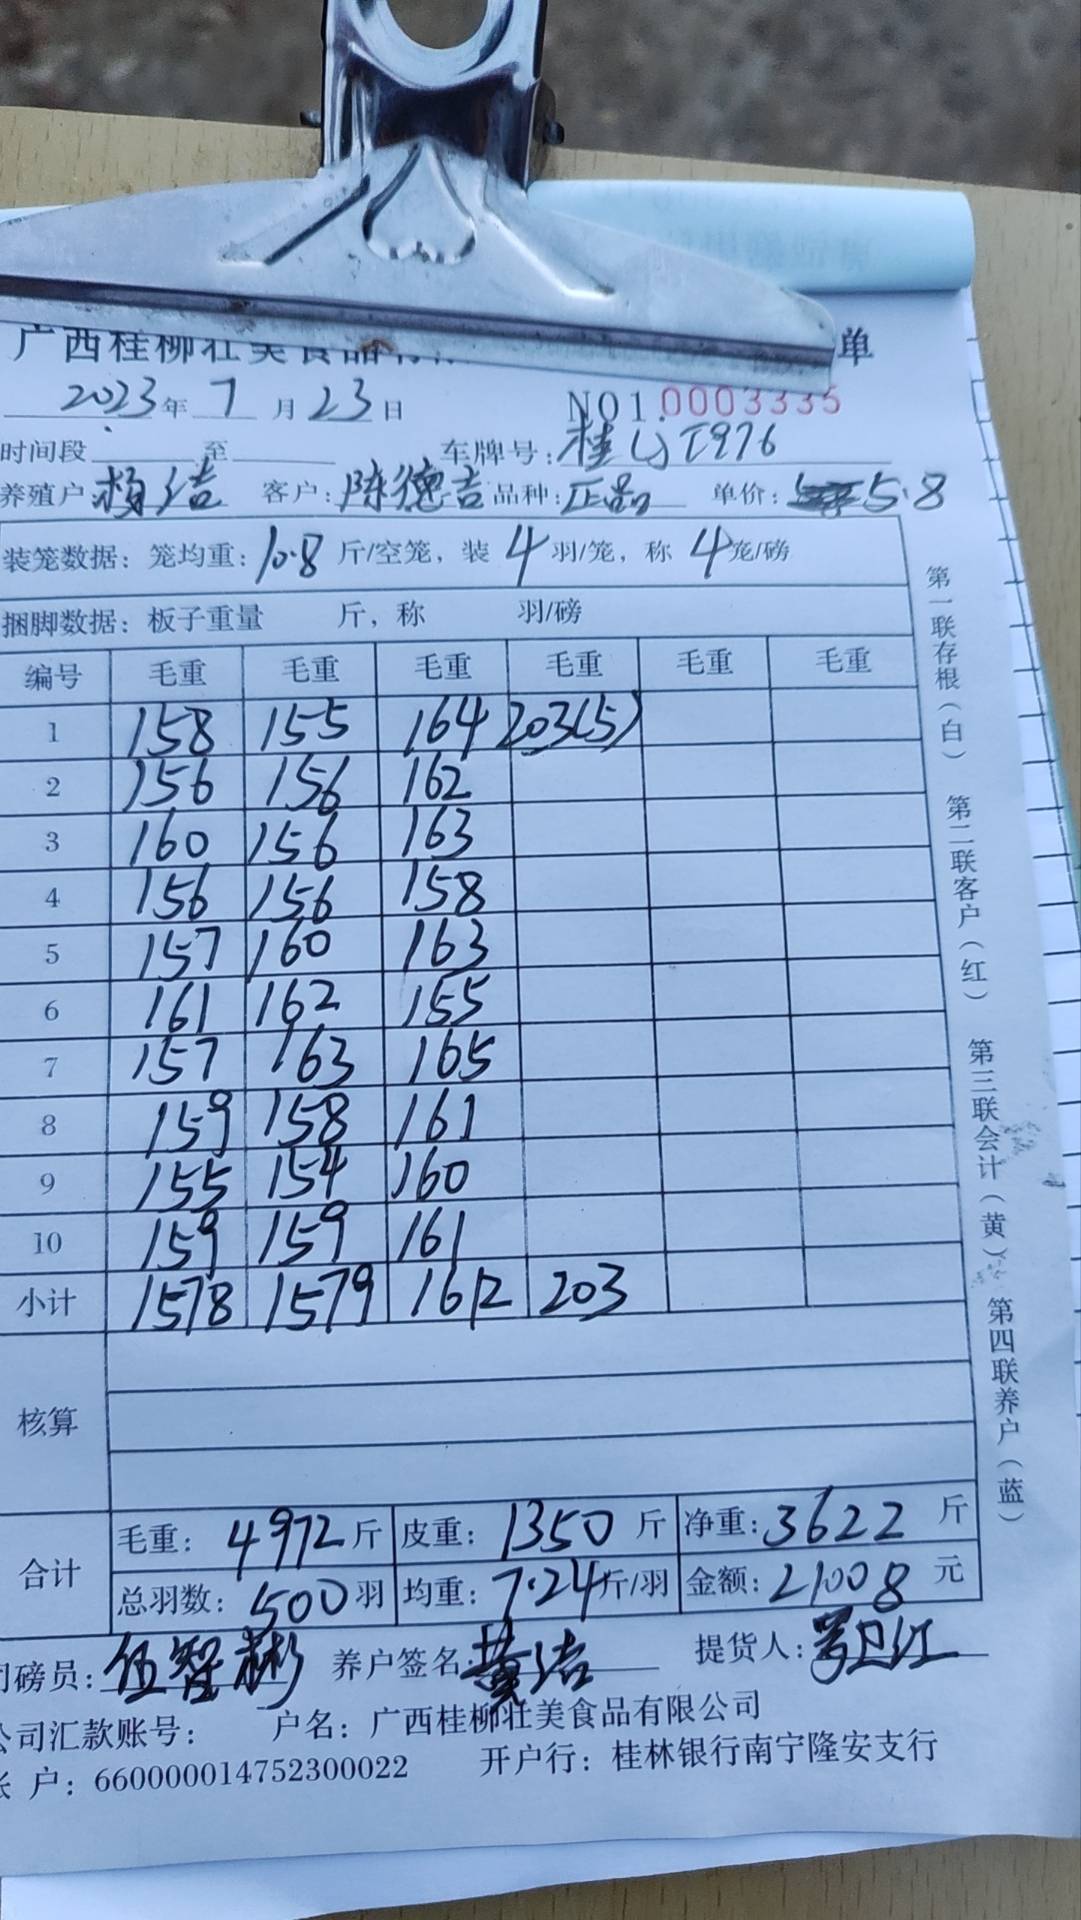 广西桂柳壮美食品有限 单
2023年 7 月 23 日 NO1.0003335
时间段 至 车牌号: 桂 T976
养殖户 杨洁 客户: 陈德吉 品种: 正品 单价: 5.8
装笼数据: 笼均重: 10.8 斤/空笼, 装 4 羽/笼, 称 4 笼/磅
捆脚数据: 板子重量 斤, 称 羽/磅
编号 毛重 毛重 毛重 毛重 毛重 毛重
1 158 155 164 203(5)
2 156 156 162
3 160 156 163
4 156 156 158
5 157 160 163
6 161 162 155
7 157 163 165
8 159 158 161
9 155 154 160
10 159 159 161
小计 1578 1579 1612 203
核算
合计 毛重: 4972 斤 皮重: 1350 斤 净重: 3622 斤
总羽数: 500 羽 均重: 7.24 斤/羽 金额: 21008 元
司磅员: 伍智彬 养户签名: 黄洁 提货人:
公司汇款账号: 户名: 广西桂柳壮美食品有限公司
账 户: 660000014752300022 开户行: 桂林银行南宁隆安支行
第一联存根(白) 第二联客户(红) 第三联会计(黄) 第四联养户(蓝)